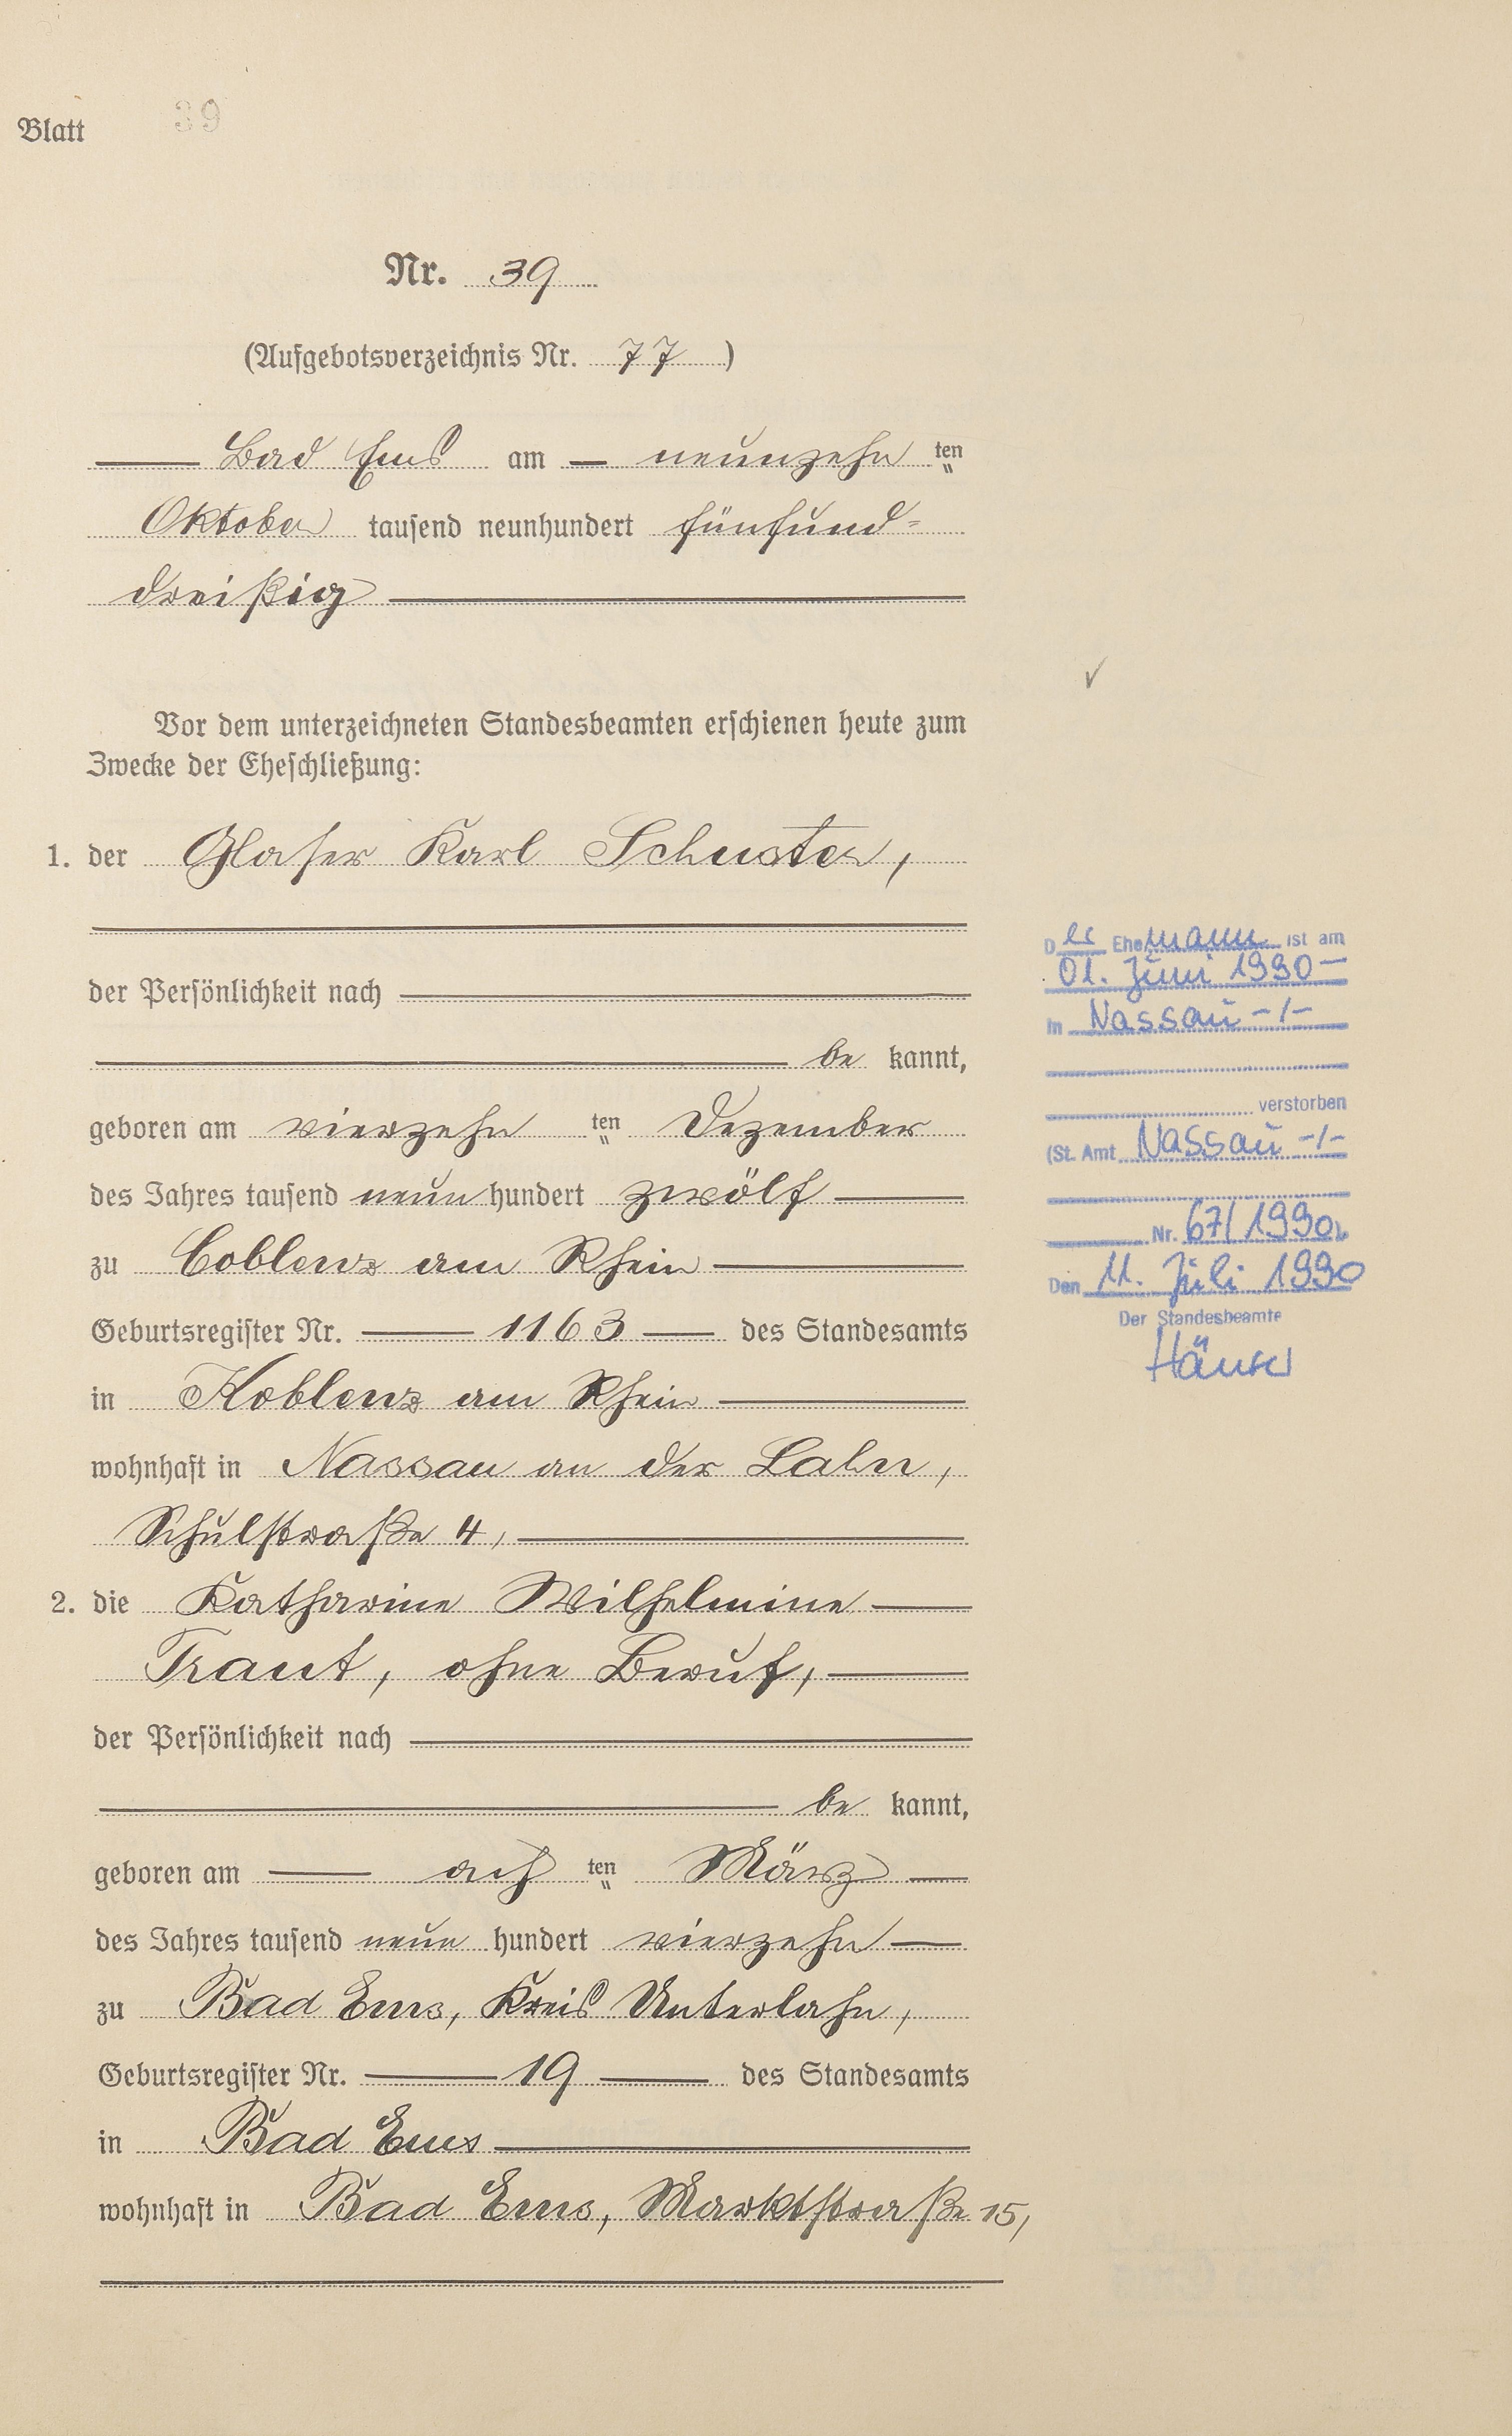 Blatt 39
Nr. 39
(Aufgebotsverzeichnis Nr. 77)
Bad Ems am neunzehn ten
Oktober tausend neunhundert fünfund=
dreißig
Vor dem unterzeichneten Standesbeamten erschienen heute zum
Zwecke der Eheschließung:
1. der Glaser Karl Schuster,
der Persönlichkeit nach
be kannt,
geboren am vierzehn ten Dezember
des Jahres tausend neun hundert zwölf
zu Coblenz am Rhein
Geburtsregister Nr. 1163 des Standesamts
in Koblenz am Rhein
wohnhaft in Nassau an der Lahn,
Schulstraße 4,
2. die Katharine Wilhelmine
Traut, ohne Beruf,
der Persönlichkeit nach
be kannt,
geboren am ach ten März
des Jahres tausend neun hundert vierzehn
zu Bad Ems, Kreis Unterlahn,
Geburtsregister Nr. 19 des Standesamts
in Bad Ems
wohnhaft in Bad Ems, Marktstraße 15,
Der Ehemann ist am
01. Juni 1990 –
in Nassau -/-
verstorben
(St. Amt Nassau -/-
Nr. 67/1990)
Den 11. Juli 1990
Der Standesbeamte